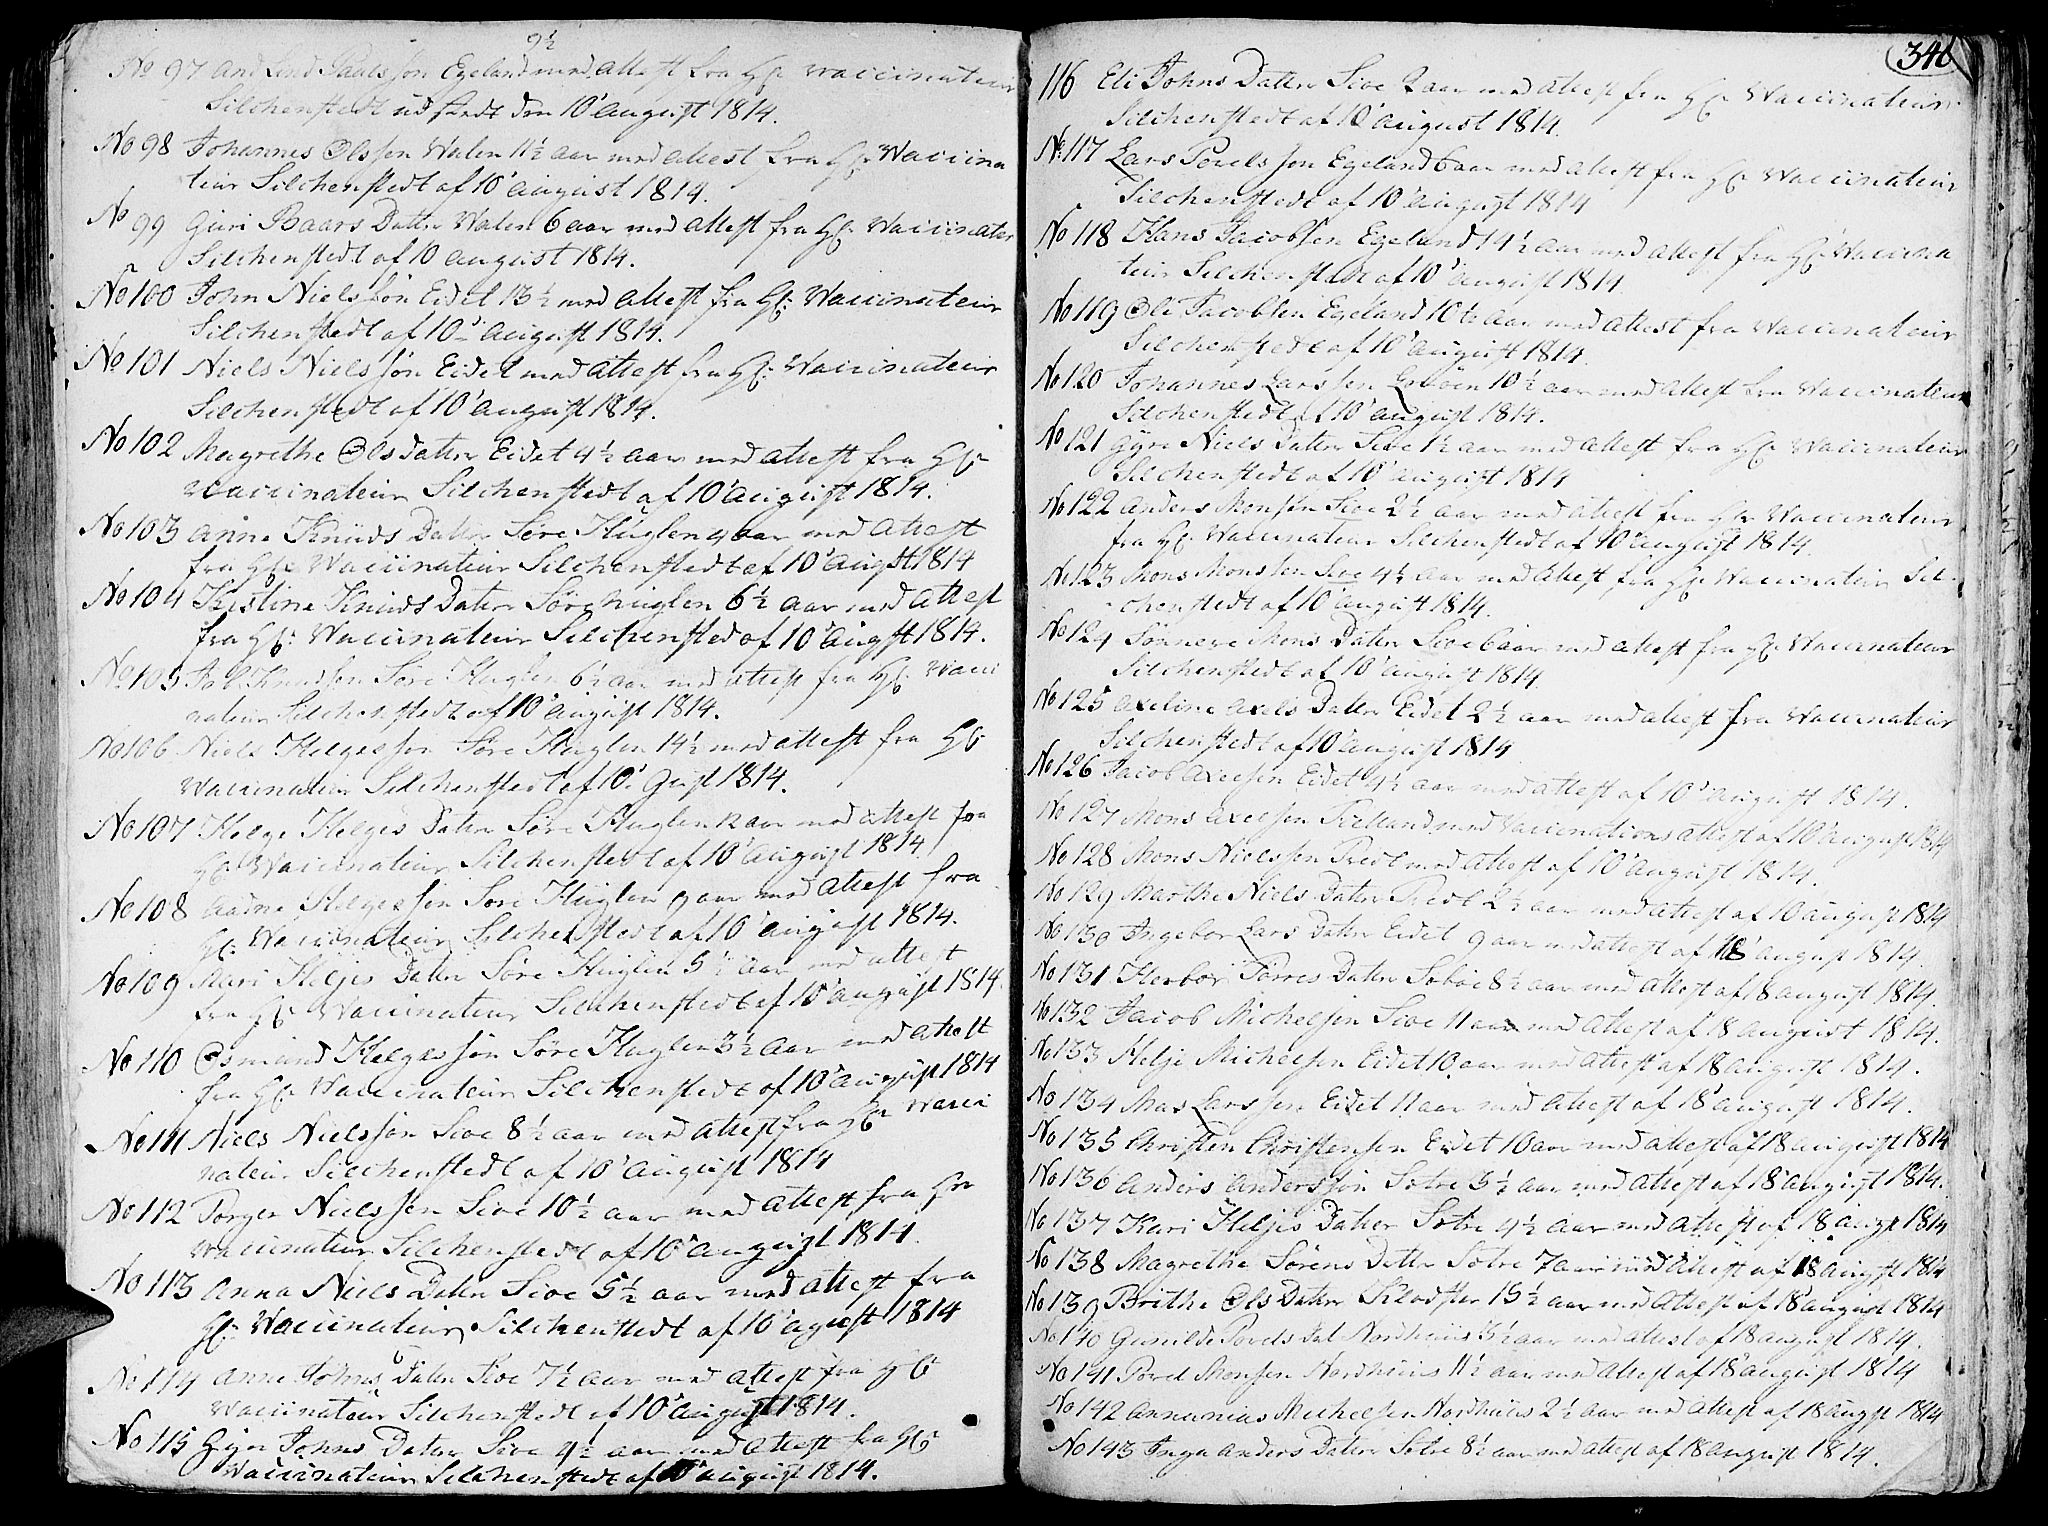 9½
No 97 And Lind Paulssøn Egeland med attest fra Hr: Vaccinateur
Silchenstedt udstedt den 10' august 1814.
No 98 Johannes Olssen Walen 11½ aar med attest fra Hr. Waccina
teur Silchenstedt af 10' august 1814.
No 99 Guri Baars Datter Walen 6 aar med attest fra Hr: Waccinateur
Silchenstedt af 10 august 1814.
No 100 John Nielssøn Eidet 13½ med attest fra Hr: Waccinateur
Silchenstedt af 10' august 1814.
No 101 Niels Nielssøn Eidet med attest fra Hr: Waccinateur
Silchenstedt af 10' august 1814.
No 102 Magrethe Olsdatter Eidet 4½ aar med attest fra Hr
Waccinateur Silchenstedt af 10' august 1814.
No 103 Anne Knuds Datter Søre Huglen 4 aar med attest
fra Hr: Waccinateur Silchenstedt af 10' augst 1814
No 104 Kristine Knuds Datter Søre huglen 6½ aar med attest
fra Hr: Waccinateur Silchensted af 10' augst 1814.
No 105 Knudssøn Søre Huglen 6½ aar med attest fra Hr: Vacci
nateur Silchenstedt af 10' august 1814.
No 106 Niels Helgessøn Søre Huglen 14½ med attest fra Hr
Waccinateur Silchenstedt af 10' gust 1814.
No 107 Helge Helges Datter Søre Huglen 12 aar med attest fra
Hr: Waccinateur Silchenstedt af 10' august 1814.
No 108 Aadne Helgessøn Søre Huglen 9 aar med attest fra
Hr: Waccinateur Silchenstedt af 10' august 1814.
No 109 Mari Heljes Datter Søre Huglen 5½ aar med attest
fra Hr: Waccinateur Silchenstedt af 10' august 1814.
No 110 Osmund Helgessøn Søre Huglen 3½ aar med attest
fra Hr: Waccinateur Silchenstedt af 10' august 1814
No 111 Niels Nielssøn Sioe 8½ aar med attest fra Hr Wacci
nateur Silchenstedt af 10' august 1814
No 112 Torger Nielssen Sioe 10½ aar med attest fra Hr
Waccinateur Silchenstedt af 10' august 1814.
No 113 Anna Niels Datter Sioe 5½ aar med attest fra
Hr: Waccinateur Silchenstedt af 10' agust 1814
No 114 Anne Johns Datter Sioe 7½ aar med attest fra Hr
Waccinateur Silchenstedt af 10' august 1814.
No 115 Gyri Johns Datter Sioe 9½ aar med attest fra Hr:
Waccinateur Silchenstedt af 10' august 1814.
346
116 Eli Johns Datter Sioe 2 aar med attest fra Hr Waccinateur
Silchenstedt af 10 august 1814.
No 117 Lars Povelssøn Egeland 6 aar med attest fra Hr: Waccinateur
Silchenstedt af 10' august 1814
No 118 Hans Jacobsen Egeland 14½ aar med attest fra Hr: Waccina
teur Silchenstedt af 10' august 1814
No 119 Ole Jacobsen Egeland 10½ aar med attest fra Waccinateur
Silchenstedt af 10' august 1814.
No 120 Johannes Larssen 10½ aar med attest fra Waccinateur
Silchenstedt af 10' august 1814.
No 121 Gyre Niels Datter Sioe 1½ aar med attest fra Hr: Waccinateur
Silchenstedt af 10' august 1814
No 122 Anders Monsen Sioe 2½ aar med attest fra Hr: Waccinateur
fra Hr: Waccinateur Silchenstedt af 10' august 1814.
No 123 Mons Monssen Sioe 4½ aar med attest fra Hr: Waccinateur Sil-
chenstedt af 10' august 1814.
No 124 Sønneve Mons Datter Sioe 6 aar med attest fra Hr: Waccinateur
Silchenstedt af 10' august 1814.
No 125 Axeline Axels Datter Eidet 2½ aar med attest fra Waccinateur
Silchenstedt af 10' august 1814
No 126 Jacob Axelsen Eidet 4½ aar med attest af 10' august 1814.
No 127 Mons Axelssen med Vaccinations attest af 10' august 1814
No 128 Mons Nielssen Tredt med attest af 10' august 1814.
No 129 Marthe Niels Datter Tredt 2½ aar med attest af 10 august 1814
No 130 Ingebor Lars Datter Eidet 9 aar med attest af 18' august 1814.
No 131 Herbor Torres Datter Søboe 8½ aar med attest af 18 august 1814.
No 132 Jacob Michelsen Sioe 11 aar med attest af 18 august 1814.
No 133 Helje Michelsen Eidet 10 aar med attest af 18 august 1814.
No 134 Mas Larssen Eidet 11 aar med attest af 18' august 1814.
No 135 Christen Christenssen Eidet 10 aar med attest af 18 august 1814
No 136 Anders Anderssøn Sotre 5½ aar med attest af 18' august 1814.
No 137 Kari Heljes Datter Sotre 4½ aar med attest af 18 augst 1814
No 138 Magrethe Sørens Datter Sotre 7 aar med attest af 18 augst 1814
No 139 Brithe Ols Datter Kloster 15½ aar med attest af 18' august 1814
No 140 Gunilde Povels Dat Nordhuus 5½ aar med attest af 18 august 1814.
No 141 Povel Monsen Nordhuus 11½ aar med attest af 18' august 1814
No 142 Annanias Michelsen Nordhuus 2½ aar med attest af 18 augst 1814
No 143 Inga Anders Datter Sotre 8½ aar med attest af 18 august 1814.